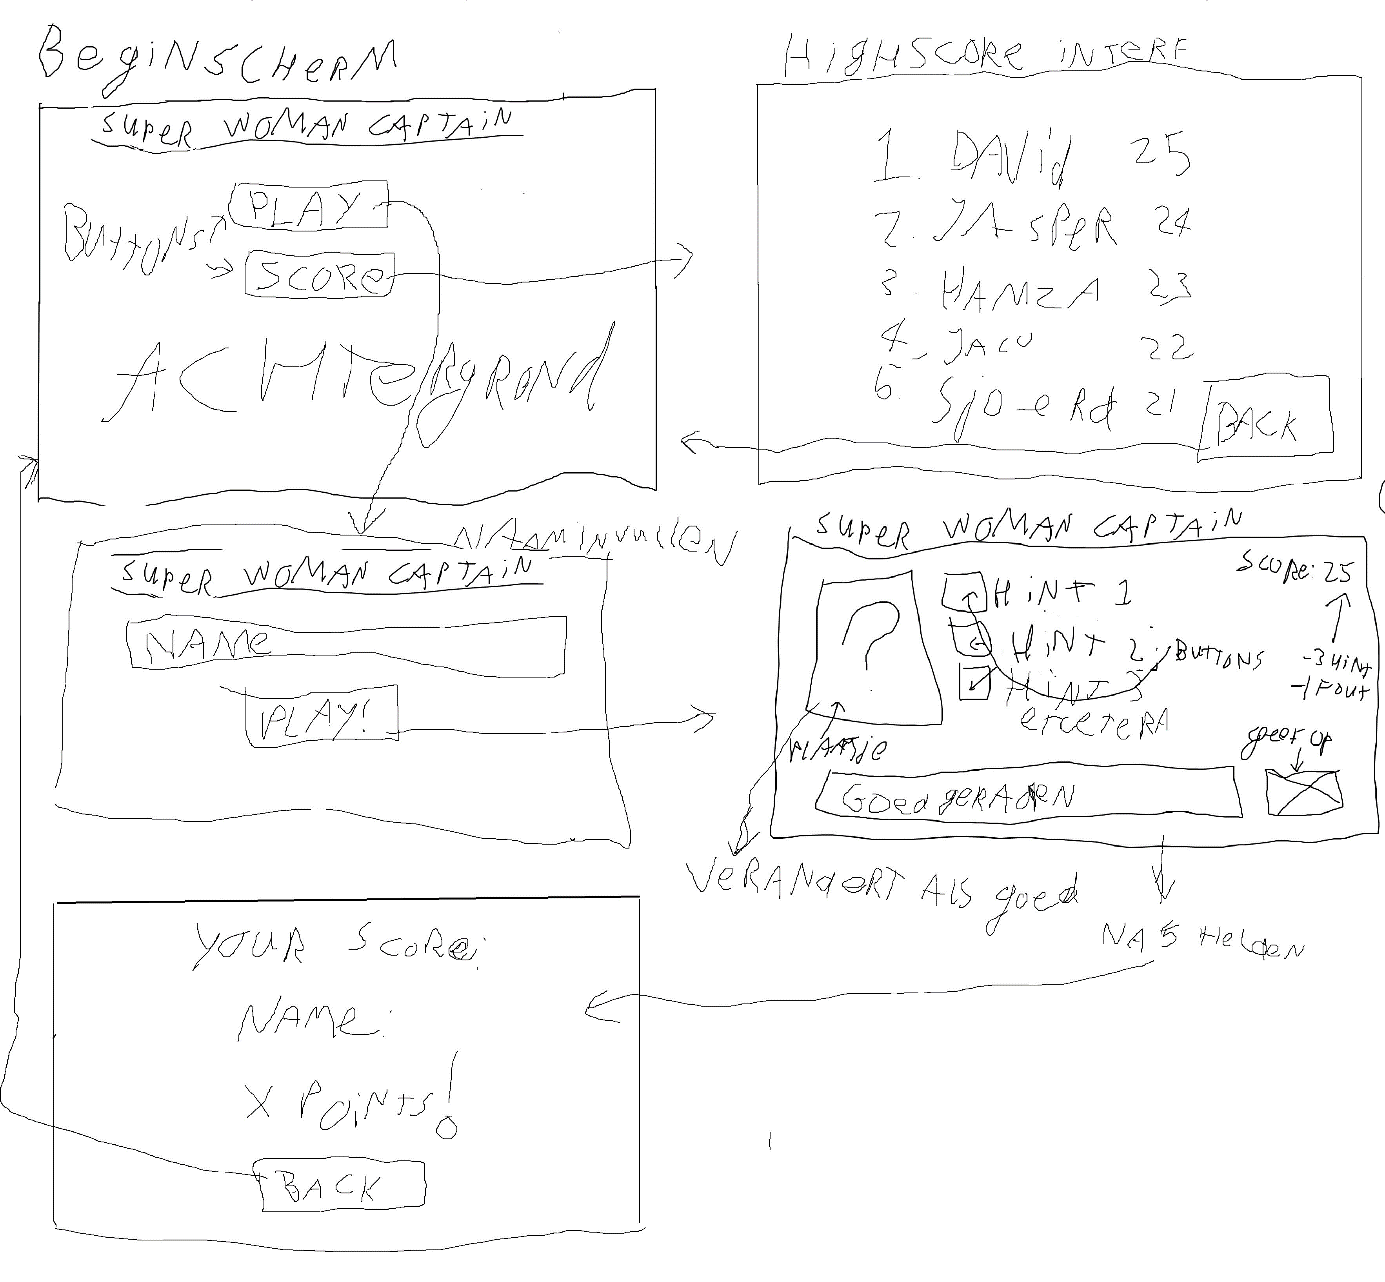 BegiNSCHeRM
SupeR WOMAN CAPTAiN
PLAY
BuTTONS
SCORe
ACHTeRgROND
HigHSCORe iNTERF
1. DAVid 25
2. JASPeR 24
3. HAMZA 23
4. JACO 22
5. SjOeRd 21
BACK
NAAminvullEN
SupeR WOMAN CAPTAiN
NAMe
PLAY!
SupeR WOMAN CAPTAiN
SCORe: 25
?
HiNT 1
HiNT 2
HiNT 3
eTCeTeRA
BuTTONS
-3 HiNT
-1 FOuT
PLAATje
geef op
Goed geRAdeN
VeRANdeRT Als goed
NA 5 HeldeN
YOUR SCORe:
NAMe:
X POiNTS!
BACK